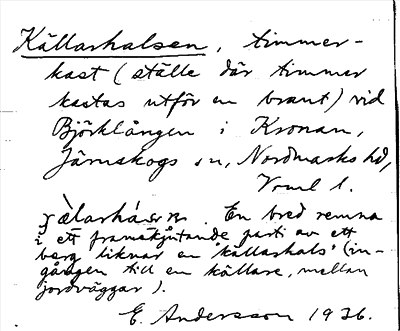 Källarhalsen, timmer-
kast (ställe där timmer
kastas utför en brant) vid
Björklången i Kronan,
Järnskogs sn, Nordmarks hd,
Vrml l.
En bred remna
i ett framskjutande parti av ett
berg liknar en 'källarhals' (in-
gången till en källare, mellan
jordväggar).
E. Andersson 1936.